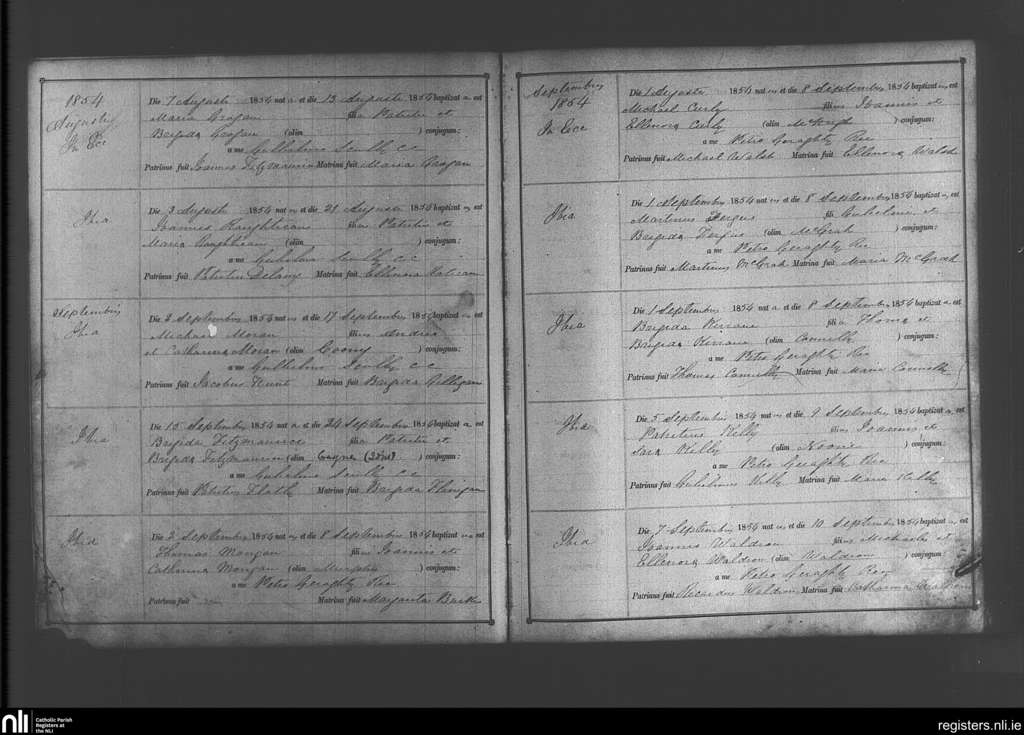 1854
Augusti
In Ecc
Die 7 Augusti 1854 nat a et die 13 Augusti 1854 baptizat a est
Maria Grogan filia Patritii et
Brigida Grogan (olim ) conjugum:
a me Gulielmo Scully C.C.
Patrinus fuit Joannes Fitzmaurice Matrina fuit Maria Grogan
Ibia
Die 3 Augusti 1854 nat us et die 21 Augusti 1854 baptizat us est
Joannes filius Patritii et
Maria (olim ) conjugum:
a me Gulielmo Scully C.C.
Patrinus fuit Patritius Delany Matrina fuit Ellenora
Septembris
Ibia
Die 3 Septembris 1854 nat us et die 17 Septembris 1854 baptizat us est
Michael Moran filius Andrea
et Catharina Moran (olim Coony ) conjugum:
a me Gulielmo Scully C C
Patrinus fuit Jacobus Hunt Matrina fuit Brigida Gilligan
Ibia
Die 15 Septembris 1854 nat a et die 24 Septembris 1854 baptizat a est
Brigida Fitzmaurice filia Patritii et
Brigida Fitzmaurice (olim ) conjugum:
a me Gulielmo Scully C.C.
Patrinus fuit Patritius Flatly Matrina fuit Brigida Flanigan
Ibid
Die 2 Septembris 1854 nat us et die 8 Septembris 1854 baptizat us est
Thomas Mongan filius Joannis et
Catharina Mongan (olim Murphy ) conjugum:
a me Petro Geraghty Rec
Patrinus fuit Matrina fuit Margarita Burke
Septembris
1854
In Ecc
Die 1 Augusti 1854 nat us et die 8 Septembris 1854 baptizat us est
Michael Curly filius Joannis et
Ellenora Curly (olim McHugh ) conjugum:
a me Petro Geraghty Rec
Patrinus fuit Michael Walsh Matrina fuit Ellenora Walsh
Ibia
Die 1 Septembris 1854 nat us et die 8 Septembris 1854 baptizat us est
Martinus Fergus fili Gulielmi et
Brigida Fergus (olim McGrath ) conjugum:
a me Petro Geraghty Rec
Patrinus fuit Martinus McGrath Matrina fuit Maria McGrath
Ibia
Die 1 Septembris 1854 nat a et die 8 Septembris 1854 baptizat a est
Brigida Kirrane filia Thoma et
Brigida Kirrane (olim Connelly ) conjugum:
a me Petro Geraghty Rec
Patrinus fuit Thomas Connelly Matrina fuit Maria Connelly
Ibia
Die 5 Septembris 1854 nat us et die 9 Septembris 1854 baptizat us est
Patritius Kelly filius Joannis et
Sara Kelly (olim ) conjugum:
a me Petro Geraghty Rec
Patrinus fuit Gulielmus Kelly Matrina fuit Maria Kelly
Ibia
Die 7 Septembris 1854 nat us et die 10 Septembris 1854 baptizat us est
Joannes Waldron filius Michaelis et
Ellenora Waldron (olim Waldron ) conjugum:
a me Petro Geraghty Rec
Patrinus fuit Ricardus Waldron Matrina fuit Catharina Waldron
nli
Catholic Parish
Registers at
the NLI
registers.nli.ie